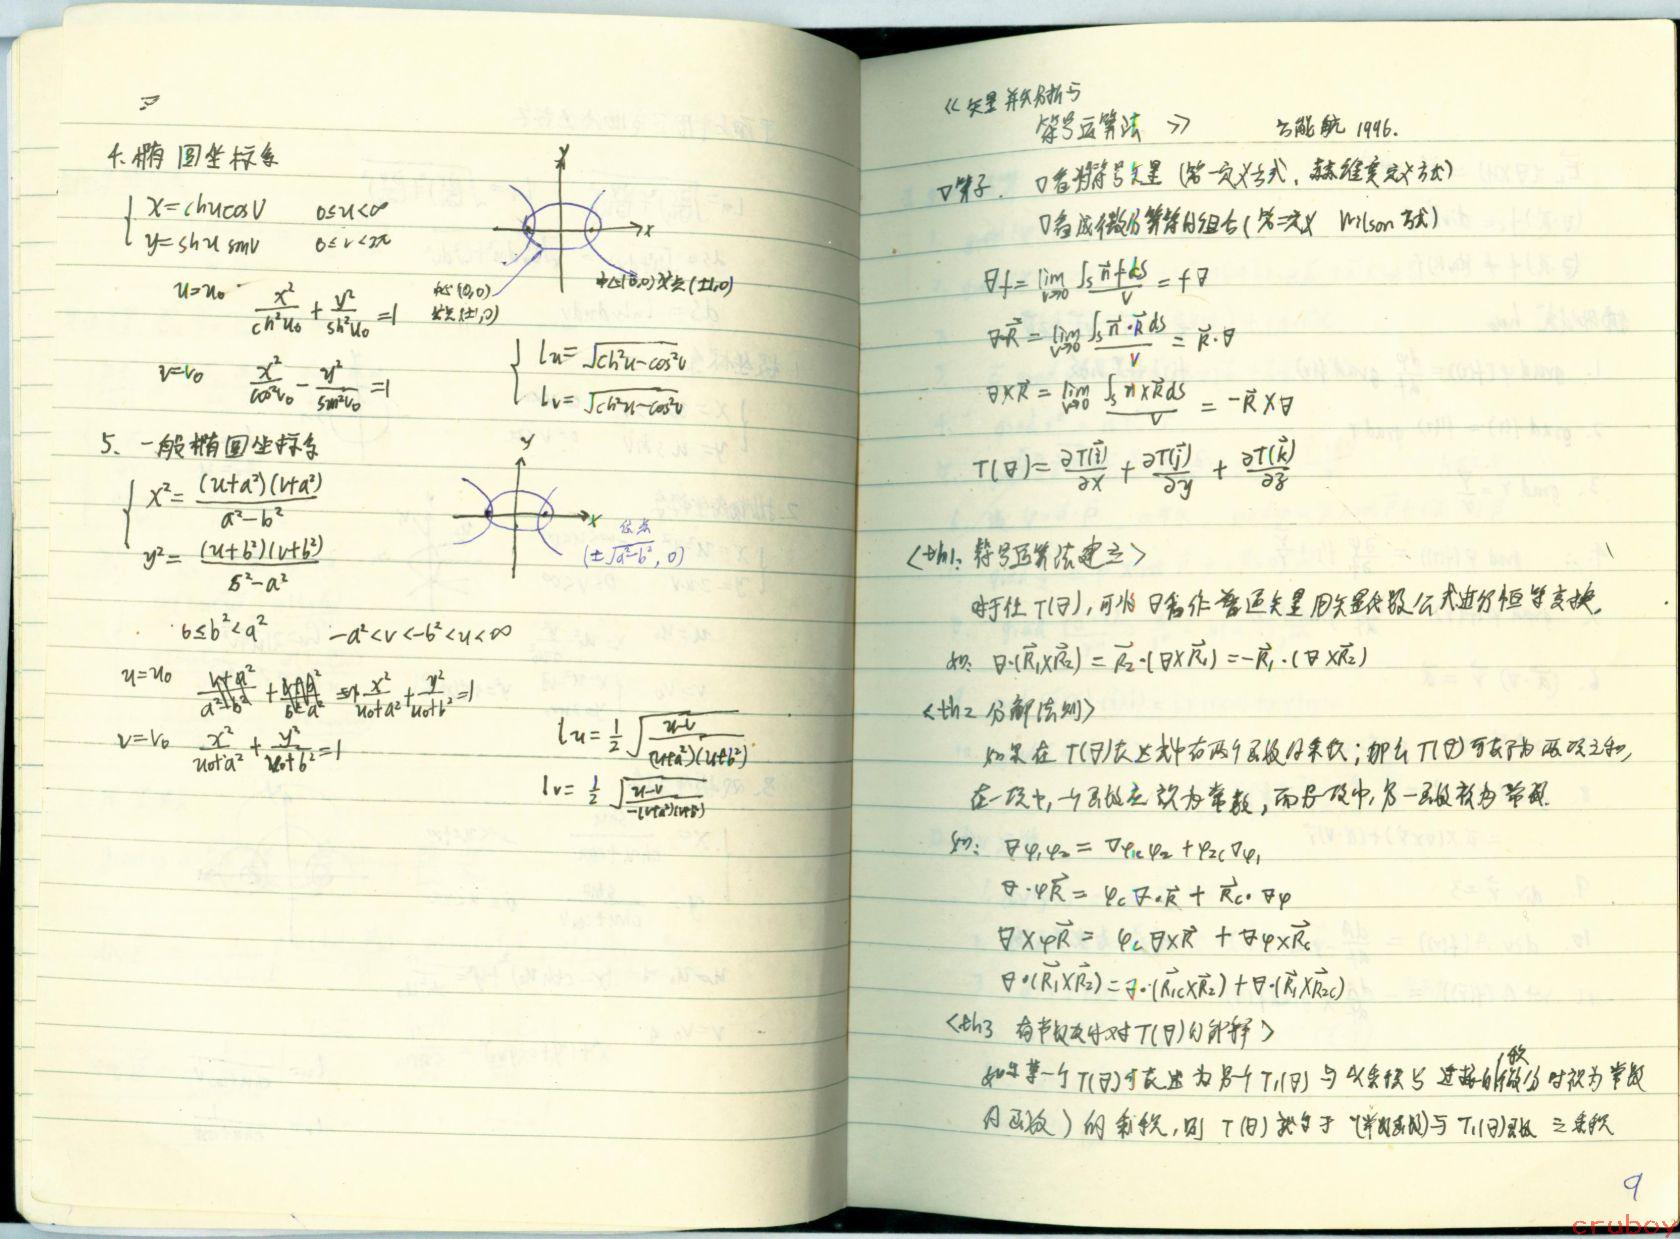 4. 椭圆坐标系
x = chu cosv    0≤u<∞
y = shu sinv    0≤v<2π
u=u₀    x²/ch²u₀ + y²/sh²u₀ = 1
中心(0,0)
焦点(±1,0)
中心(0,0) 焦点(±1,0)
v=v₀    x²/cos²v₀ - y²/sin²v₀ = 1
lu = √(ch²u-cos²v)
lv = √(ch²u-cos²v)
y
x
5. 一般椭圆坐标系
x² = (u+a²)(v+a²)/(a²-b²)
y² = (u+b²)(v+b²)/(b²-a²)
y
x
焦点
(±√(a²-b²), 0)
0≤b²<a²    -a²<v<-b²<u<∞
u=u₀    x²/(u₀+a²) + y²/(u₀+b²) = 1
v=v₀    x²/(u₀+a²) + y²/(u₀+b²) = 1
lu = 1/2 √((u-v)/((u+a²)(u+b²)))
lv = 1/2 √((u-v)/(-(v+a²)(v+b²)))
《矢量并矢分析与
符号运算法》    1996.
∇算子. ∇看为符号矢量 (第一定义方式, 定义方式)
∇看成微分算符的组合 (第二定义 Wilson 方式)
∇f = lim v→0 ∫s n⃗ f ds / v = f∇
∇·R⃗ = lim v→0 ∫s n⃗·R⃗ ds / v = R⃗·∇
∇×R⃗ = lim v→0 ∫s n×R⃗ ds / v = -R⃗×∇
T(∇) = ∂T(i⃗)/∂x + ∂T(j⃗)/∂y + ∂T(k⃗)/∂z
<th1: 符号运算法建立>
对于任T(∇), 可将∇看作普通矢量用矢量代数公式进行恒等变换.
如: ∇·(R⃗₁×R⃗₂) = R⃗₂·(∇×R⃗₁) = -R⃗₁·(∇×R⃗₂)
<th2 分解法则>
如果在T(∇)表达式中有两个函数的乘积; 那么T(∇)可表示为两项之和,
在一项中, 一个函数应视为常数, 而另一项中, 另一函数视为常数.
如: ∇φ₁φ₂ = ∇φ₁cφ₂ + φ₂c∇φ₁
∇·φR⃗ = φc∇·R⃗ + R⃗c·∇φ
∇×φR⃗ = φc∇×R⃗ + ∇φ×R⃗c
∇·(R⃗₁×R⃗₂) = ∇·(R⃗₁c×R⃗₂) + ∇·(R⃗₁×R⃗₂c)
<th3 有常数次时对T(∇)的解释>
如果某一个T(∇)可表达为另个T₁(∇)与 (微分时视为常数
的函数) 的乘积, 则T(∇)就等于 与T₁(∇)函数之乘积
9
cruboy